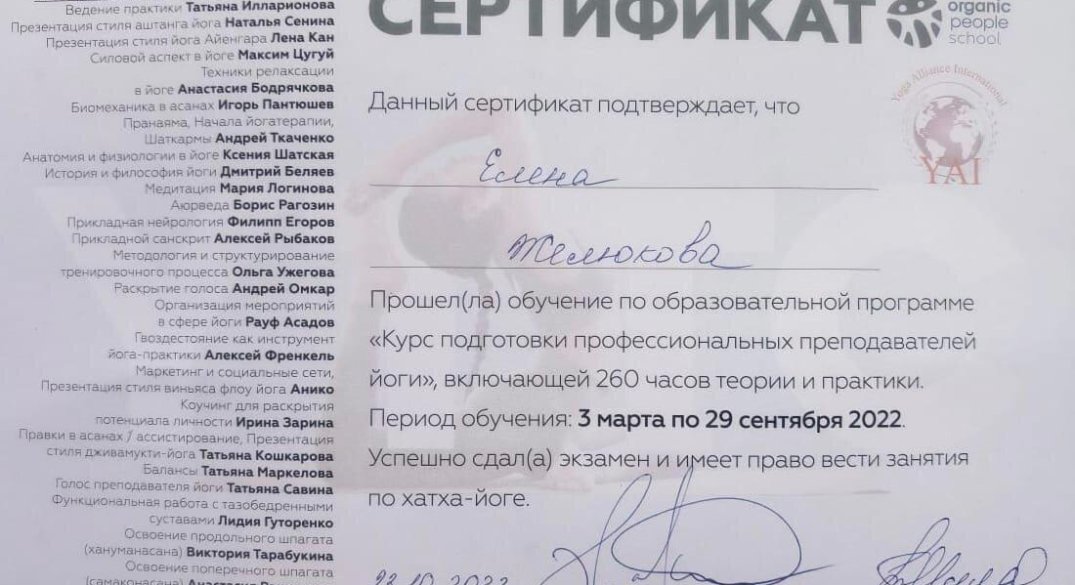 Ведение практики Татьяна Илларионова
Презентация стиля аштанга йога Наталья Сенина
Презентация стиля йога Айенгара Лена Кан
Силовой аспект в йоге Максим Цугуй
Техники релаксации
в йоге Анастасия Бодрячкова
Биомеханика в асанах Игорь Пантюшев
Пранаяма, Начала йогатерапии,
Шаткармы Андрей Ткаченко
Анатомия и физиологии в йоге Ксения Шатская
История и философия йоги Дмитрий Беляев
Медитация Мария Логинова
Аюрведа Борис Рагозин
Прикладная нейрология Филипп Егоров
Прикладной санскрит Алексей Рыбаков
Методология и структурирование
тренировочного процесса Ольга Ужегова
Раскрытие голоса Андрей Омкар
Организация мероприятий
в сфере йоги Рауф Асадов
Гвоздестояние как инструмент
йога-практики Алексей Френкель
Маркетинг и социальные сети,
Презентация стиля виньяса флоу йога Анико
Коучинг для раскрытия
потенциала личности Ирина Зарина
Правки в асанах / ассистирование, Презентация
стиля дживамукти-йога Татьяна Кошкарова
Балансы Татьяна Маркелова
Голос преподавателя йоги Татьяна Савина
Функциональная работа с тазобедренными
суставами Лидия Гуторенко
Освоение продольного шпагата
(хануманасана) Виктория Тарабукина
Освоение поперечного шпагата
(самаконасана)
СЕРТИФИКАТ
organic
people
school
Yoga Alliance International
YAI
Данный сертификат подтверждает, что
Елена
Желюкова
Прошел(ла) обучение по образовательной программе
«Курс подготовки профессиональных преподавателей
йоги», включающей 260 часов теории и практики.
Период обучения: 3 марта по 29 сентября 2022.
Успешно сдал(а) экзамен и имеет право вести занятия
по хатха-йоге.
22.10.2022